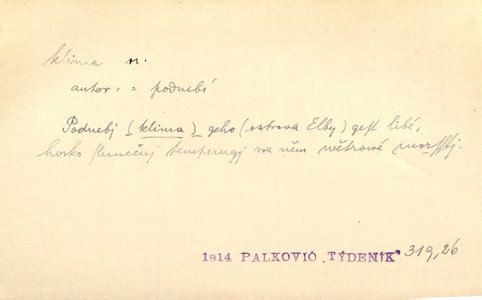 klima n.
autor: = podnebí
Podnebj (klima) geho (ostrova Elby) gest libé,
horko slunečnj temperugj na něm wětrowé morsstj.
1814 PALKOVIČ „TÝDENÍK" 319,26